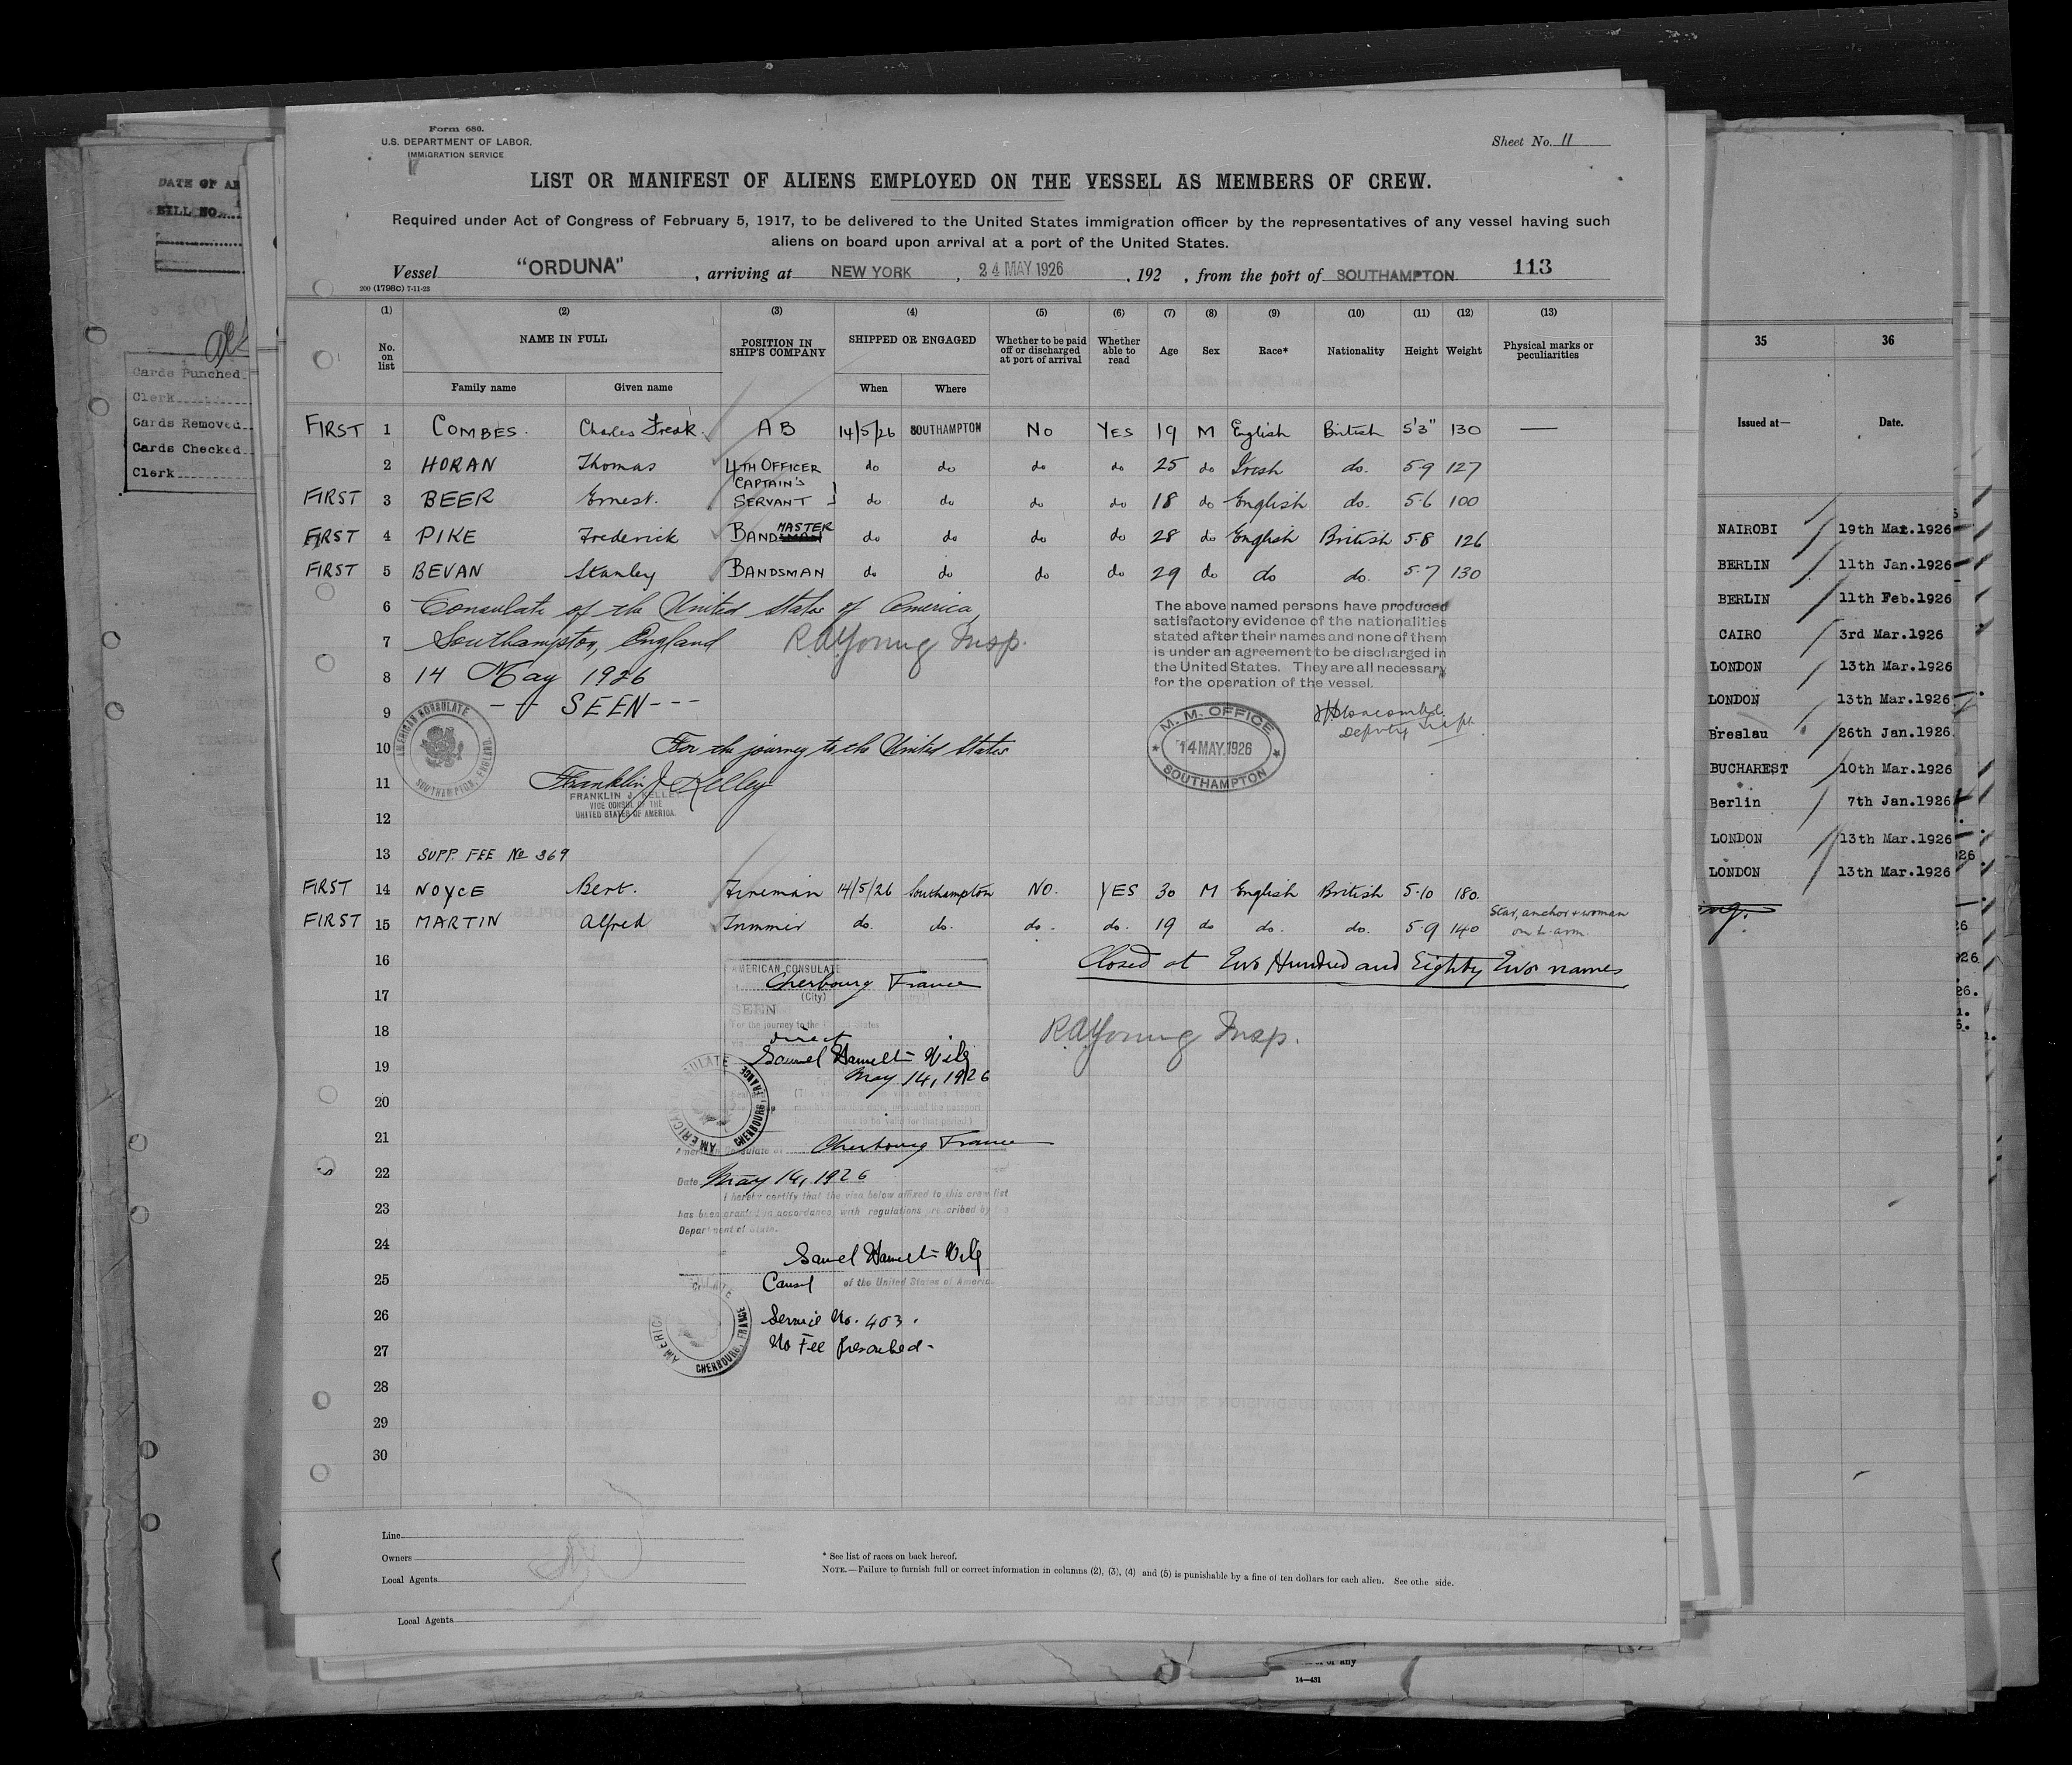 Form 680.
U.S. DEPARTMENT OF LABOR.
IMMIGRATION SERVICE
Sheet No. 11
LIST OR MANIFEST OF ALIENS EMPLOYED ON THE VESSEL AS MEMBERS OF CREW.
Required under Act of Congress of February 5, 1917, to be delivered to the United States immigration officer by the representatives of any vessel having such
aliens on board upon arrival at a port of the United States.
Vessel "ORDUNA", arriving at NEW YORK, 24 MAY 1926, 192 , from the port of SOUTHAMPTON. 113
200 (1798C) 7-11-23
(1) (2) (3) (4) (5) (6) (7) (8) (9) (10) (11) (12) (13)
No. on list NAME IN FULL POSITION IN SHIP'S COMPANY SHIPPED OR ENGAGED Whether to be paid off or discharged at port of arrival Whether able to read Age Sex Race* Nationality Height Weight Physical marks or peculiarities
Family name Given name When Where
FIRST 1 COMBES. Charles A B 14/5/26 SOUTHAMPTON NO YES 19 M English British 5'3" 130 —
2 HORAN Thomas 4TH OFFICER do do do do 25 do Irish do. 5 9 127
FIRST 3 BEER Ernest. CAPTAIN'S SERVANT do do do do 18 do English do. 5.6 100
FIRST 4 PIKE Frederick BANDMASTER do do do do 28 do English British 5.8 126
FIRST 5 BEVAN Stanley BANDSMAN do do do do 29 do do do. 5.7 130
6 Consulate of the United States of America,
7 Southampton, England R A Young Insp.
8 14 May 1926
9 - - SEEN - - -
10 For the journey to the United States
11 Franklin J Kelley
FRANKLIN J. KELLEY
VICE CONSUL OF THE
UNITED STATES OF AMERICA.
AMERICAN CONSULATE
SOUTHAMPTON, ENGLAND
The above named persons have produced
satisfactory evidence of the nationalities
stated after their names and none of them
is under an agreement to be discharged in
the United States. They are all necessary
for the operation of the vessel.
M. M. OFFICE
14 MAY 1926
SOUTHAMPTON
Deputy Supt.
12
13 SUPP. FEE No 369
FIRST 14 NOYCE Bert. Fireman 14/5/26 Southampton NO. YES 30 M English British 5.10 180.
FIRST 15 MARTIN Alfred Trimmer do. do. do. do. 19 do do. do. 5.9 140 Star, anchor & woman on L. arm.
16 Closed at Two Hundred and Eighty Two names
AMERICAN CONSULATE
17 Cherbourg France
(City)
SEEN
For the journey to the United States
18 direct
R A Young Insp.
19
May 14, 1926
20
21
American Consulate at Cherbourg France
22 Date May 14, 1926
I hereby certify that the visa below affixed to this crew list
23 has been granted in accordance with regulations prescribed by the
Department of State.
24
25 Consul of the United States of America.
26 Service No. 403.
27 No Fee prescribed-
AMERICAN CONSULATE
CHERBOURG, FRANCE
28
29
30
Line
Owners
Local Agents
* See list of races on back hereof.
NOTE.—Failure to furnish full or correct information in columns (2), (3), (4) and (5) is punishable by a fine of ten dollars for each alien. See othe side.
Local Agents
14—431
DATE OF AR
BILL NO.
Cards Punched
Clerk
Cards Removed
Cards Checked
Clerk
35 36
Issued at— Date.
NAIROBI 19th Mar.1926
BERLIN 11th Jan.1926
BERLIN 11th Feb.1926
CAIRO 3rd Mar.1926
LONDON 13th Mar.1926
LONDON 13th Mar.1926
Breslau 26th Jan.1926.
BUCHAREST 10th Mar.1926
Berlin 7th Jan.1926
LONDON 13th Mar.1926
LONDON 13th Mar.1926